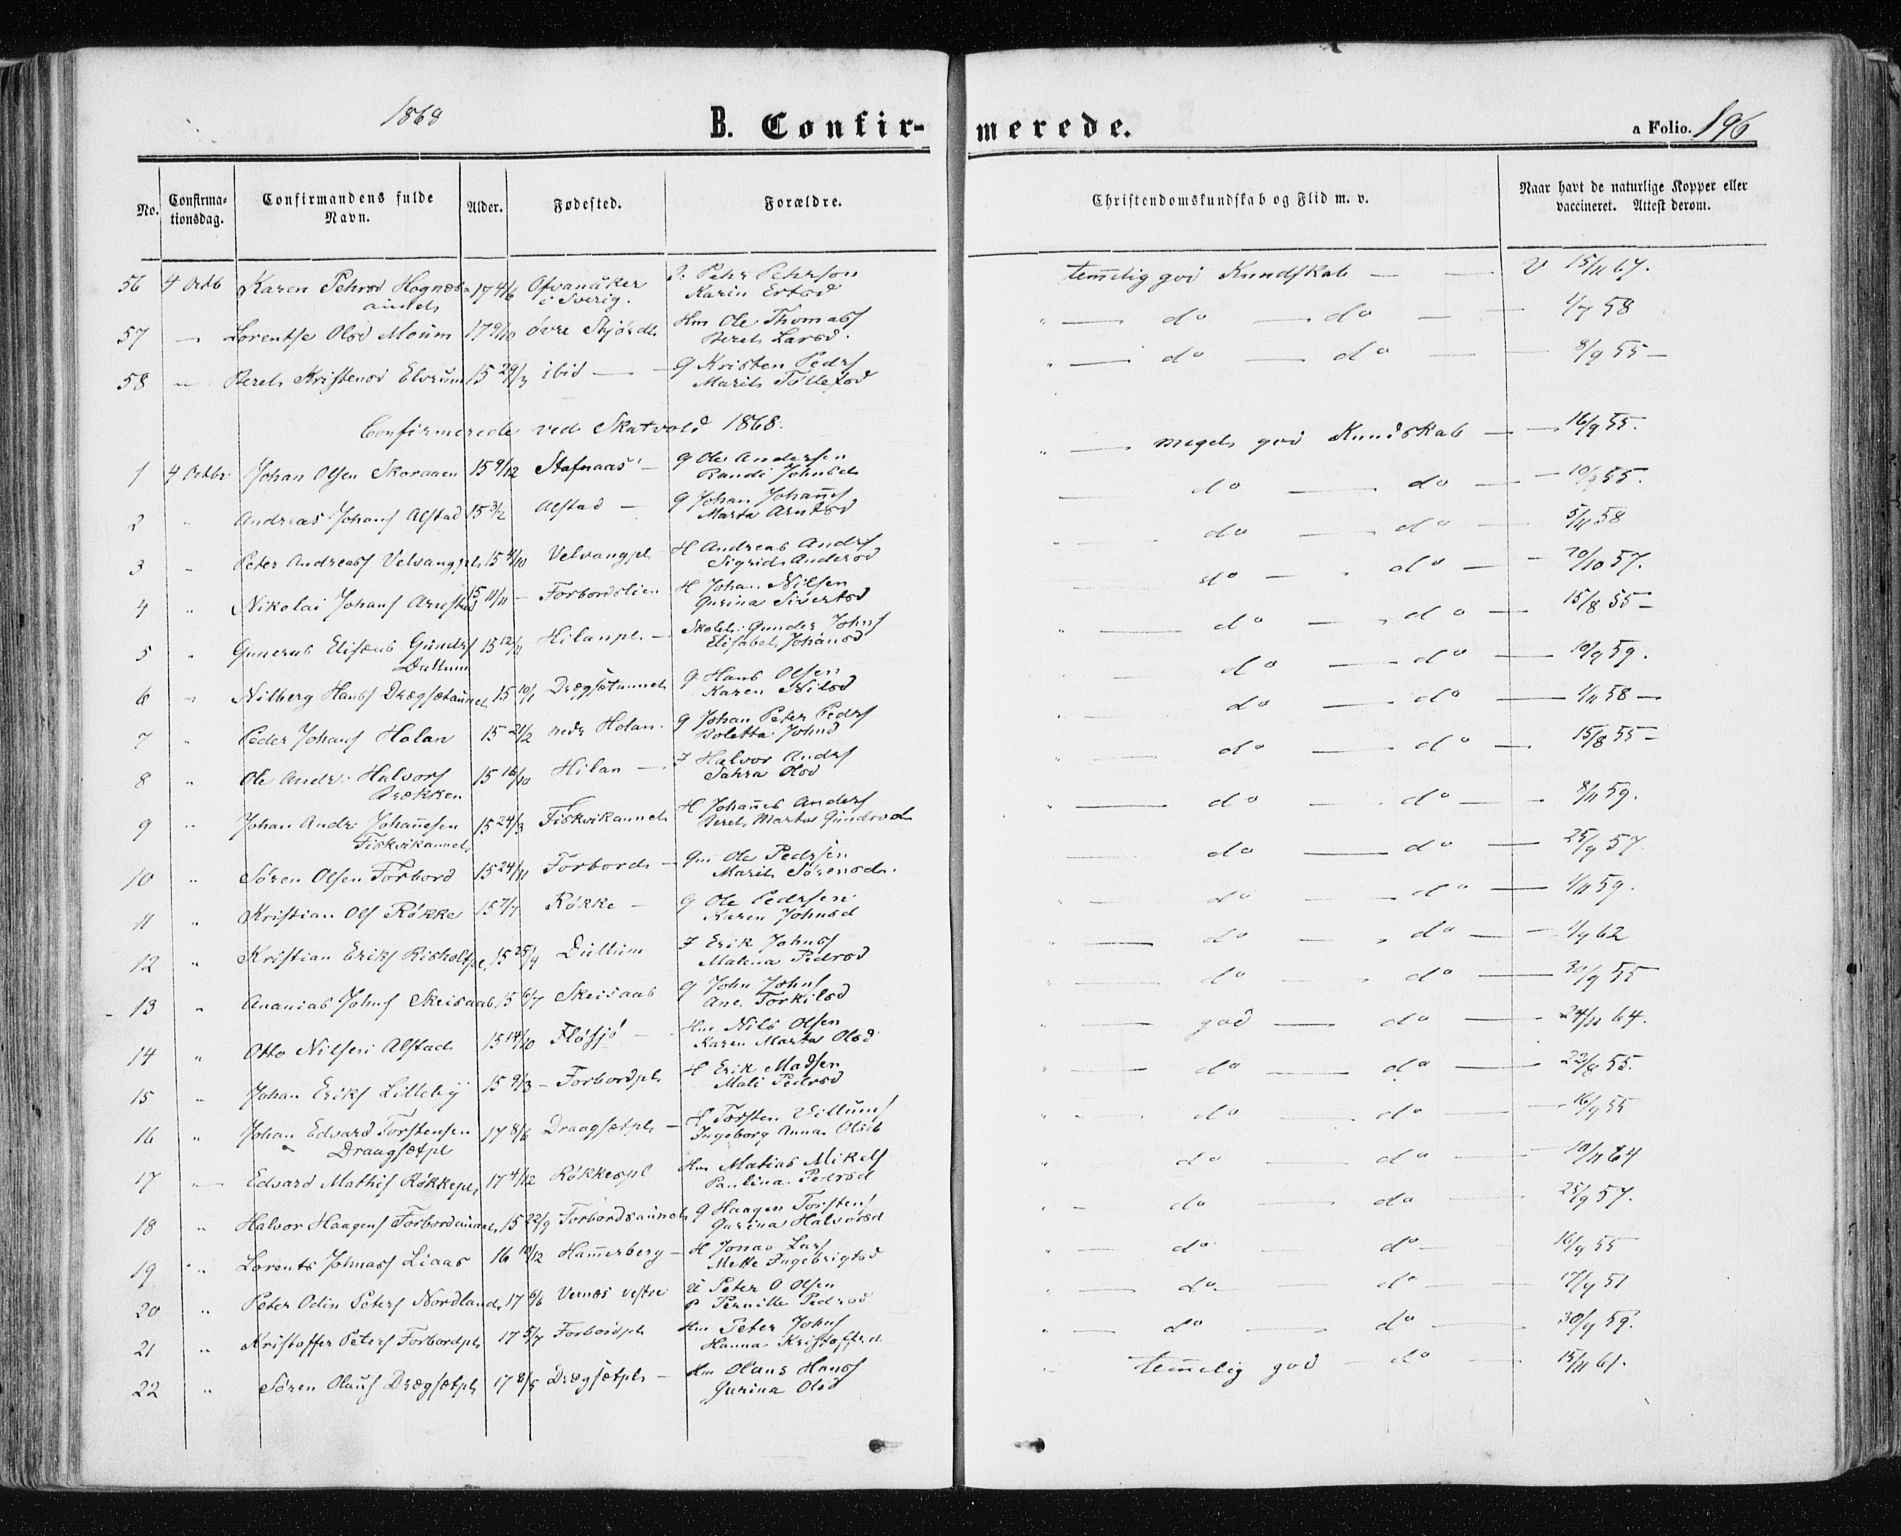 1868
B. Confirmerede.
a Folio. 196
No. Confirmationsdag. Confirmandens fulde Navn. Alder. Fødested. Forældre. Christendomskundskab og Flid m. v. Naar havt de naturlige Kopper eller vaccineret. Attest derom.
56 4 Octb Karen Pehrsd Hognæs- 17 4/6 Ofvanåker Pehr Pehrson temelig god Kundskab — — V 15/11 67.
aunet i Sverig. Karin Ersd
57 — Lorentse Olsd Moum 17 9/10 Øvre Stjørd. Hm Ole Thomass — do — do — — 4/7 58
Beret Larsd.
58 — Beret Kristensd Elvrum 15 29/3 ibid — G Kristen Peders — do — do — 8/9 55 —
Marit Tollefsd
Confirmerede ved Skatvold 1868.
1 4 Octbr Johan Olsen Skoraaen 15 9/12 Stafnaas — G Ole Andersen — meget god Kundskab — 16/9 55.
Randi Johnsd
2 " Andreas Johans Alstad 15 3/2 Alstad — G Johan Johans — do — do — 10/9 55.
Marta Arntsd
3 " Peter Andreass Velvangpl. 15 4/10 Velvangpl. H Andreas Anders — do — do — 5/11 58
Sigrid Andersd
4 " Nikolai Johans 15 11/11 — Forbordslien H Johan Nilsen do — do — 20/10 57.
Gurina Sivertsd
5 " Gunerus Eliseus Gunders 15 12/11 Hilanpl — Skoleh. Gunder Johns — do — do — 15/8 55 —
Dullum Elisabet Johansd
6 " Nilberg Hans Drægsetaunet 15 10/1 Drægsetaunet G Hans Olsen do — do — 10/9 59.
Karen Nilsd
7 " Peder Johans Holan 15 21/2 nedr Holan. G Johan Peter Peders do — do — 4/11 58 —
Boletta Johnsd
8 " Ole Andr. Halvors 15 16/10 Hilan — I Halvor Anders do — do — 15/8 55 —
Brækken Sahra Olsd
9 " Johan Andr. Johannesen 15 24/3 Fiskvikaunet H Johannes Anders — do — do — 8/11 59.
Fiskvikaunet Beret Marta Gundersd
10 " Søren Olsen Forbord 15 24/11 Forbord — Gm Ole Pedersen — do — do — 25/9 57.
Marit Sørensd.
11 " Kristian Ols Røkke 15 7/7 Røkke — G Ole Pedersen — do — do — 4/11 59.
Karen Johnsd
12 " Kristian Eriks Risholtpl. 15 25/4 Dullum I Erik Johns — do — do — 1/9 62
Malena Pedersd
13 " Ananias Johns Skeisaas 15 6/7 Skeisaas G John Johns — do — do — 30/9 55
Ane Torkilsd
14 " Otto Nilsen Alstad 15 14/10 Fløsjø — Hm Nils Olsen — god — do — 24/11 64.
Karen Marta Olsd
15 " Johan Eriks Lilleby 15 9/3 — Forbordpl. H Erik Madsen — do — do — 22/8 55.
Mali Pedersd
16 " Johan Edvard Torstensen 17 8/6 Draagsetpl — H Torsten Villums — do — do — 16/9 55
Draagsetpl Ingeborg Anna Olsd
17 " Edvard Mathis Røkkepl. 17 4/12 Røkkespl Hm Matias Mikels — do — do — 10/11 64
Paulina Pedersd
18 " Halvor Haagens Forbordaunet 15 22/9 Forbordsaunet G Haagen Torstens — do — do — 25/9 57.
Gurina Halvorsd
19 " Lorents Johnass Liaas 16 10/12 Hammerberg — H Jonas Lars — do — do — 16/9 55
Mette Ingebrigtsd
20 " Peter Odin Peters Nordland 17 6/6 Vernæs vestre U Peter O Olsen — do — do — 17/9 51
P Pernille Pedersd
21 " Kristoffer Peters Forbordpl. 17 5/7 Forbordpl. Hm Peter Johns — do — do — 30/9 59.
Hanna Kristoffsd
22 " Søren Olaus Drægsetpl. 17 8/5 Drægsetpl. — Hm Olaus Hans — temelig god — do — 15/11 61.
Gurina Olsd